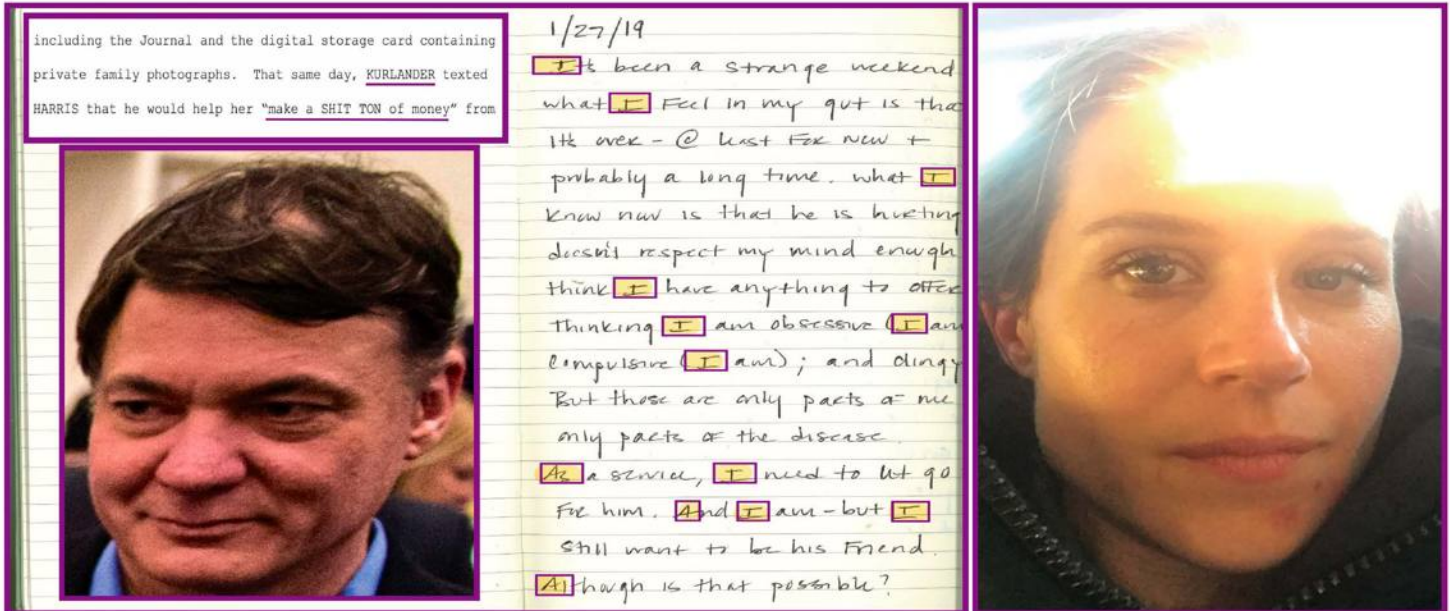 including the Journal and the digital storage card containing
private family photographs. That same day, KURLANDER texted
HARRIS that he would help her "make a SHIT TON of money" from
1/27/19
It's been a strange weekend
what I Feel in my gut is tha
It's over - @ least For now +
probably a long time. what I
know now is that he is hurting
doesn't respect my mind enough
think I have anything to offer
thinking I am obsessive (I am
compulsive (I am); and clingy
But those are only parts of me
only parts of the disease.
As a service, I need to let go
For him. And I am - but I
still want to be his Friend.
Although is that possible?